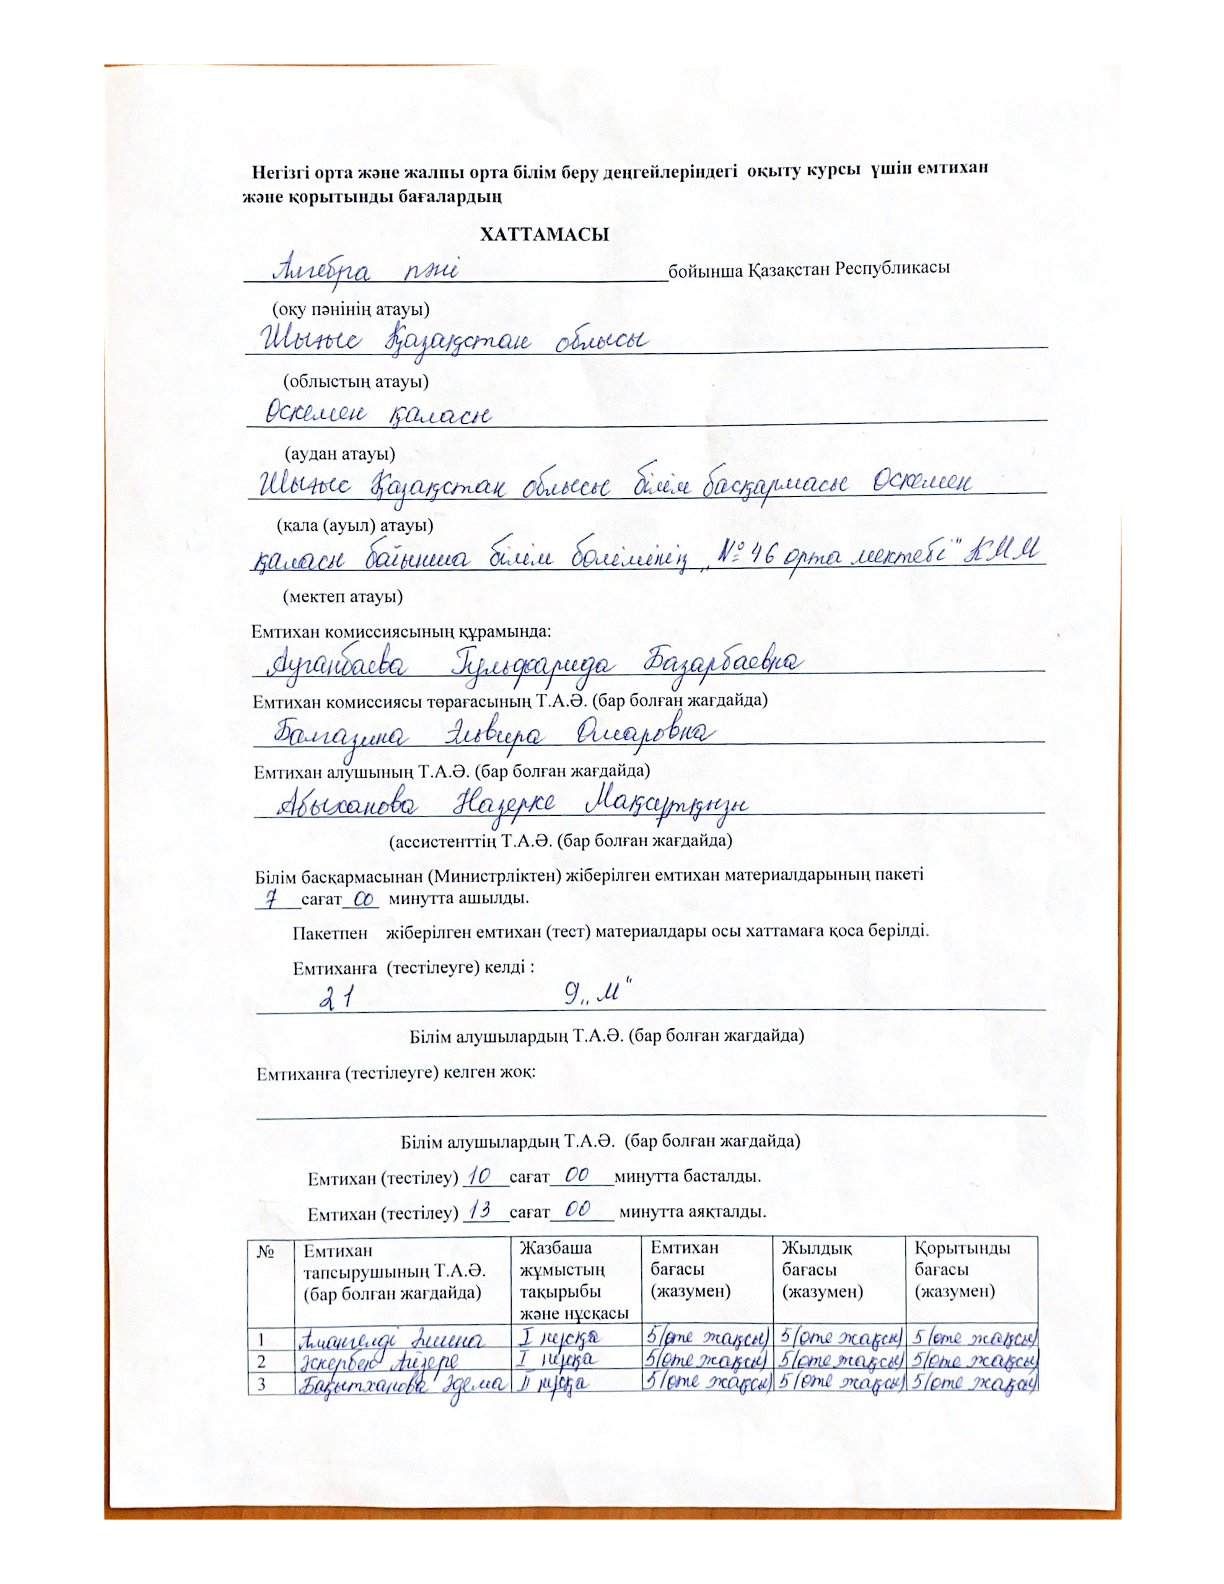 Негізгі орта және жалпы орта білім беру деңгейлеріндегі оқыту курсы үшін емтихан
және қорытынды бағалардың
ХАТТАМАСЫ
Алгебра пәні бойынша Қазақстан Республикасы
(оқу пәнінің атауы)
Шығыс Қазақстан облысы
(облыстың атауы)
Өскемен қаласы
(аудан атауы)
Шығыс Қазақстан облысы білім басқармасы Өскемен
(қала (ауыл) атауы)
қаласы бойынша білім бөлімінің „№ 46 орта мектебі" КММ
(мектеп атауы)
Емтихан комиссиясының құрамында:
Ауганбаева Гульфарида Базарбаевна
Емтихан комиссиясы төрағасының Т.А.Ә. (бар болған жағдайда)
Балгазина Эльвира Омаровна
Емтихан алушының Т.А.Ә. (бар болған жағдайда)
Абыханова Назерке Мақсұтқызы
(ассистенттің Т.А.Ә. (бар болған жағдайда)
Білім басқармасынан (Министрліктен) жіберілген емтихан материалдарының пакеті
7 сағат 00 минутта ашылды.
Пакетпен жіберілген емтихан (тест) материалдары осы хаттамаға қоса берілді.
Емтиханға (тестілеуге) келді :
21 9 „М"
Білім алушылардың Т.А.Ә. (бар болған жағдайда)
Емтиханға (тестілеуге) келген жоқ:
Білім алушылардың Т.А.Ә. (бар болған жағдайда)
Емтихан (тестілеу) 10 сағат 00 минутта басталды.
Емтихан (тестілеу) 13 сағат 00 минутта аяқталды.
№ Емтихан тапсырушының Т.А.Ә. (бар болған жағдайда) Жазбаша жұмыстың тақырыбы және нұсқасы Емтихан бағасы (жазумен) Жылдық бағасы (жазумен) Қорытынды бағасы (жазумен)
1 Амангелді I нұсқа 5 (өте жақсы) 5 (өте жақсы) 5 (өте жақсы)
2 Әскербек Айзере I нұсқа 5 (өте жақсы) 5 (өте жақсы) 5 (өте жақсы)
3 Бақытханова Әдема II нұсқа 5 (өте жақсы) 5 (өте жақсы) 5 (өте жақсы)